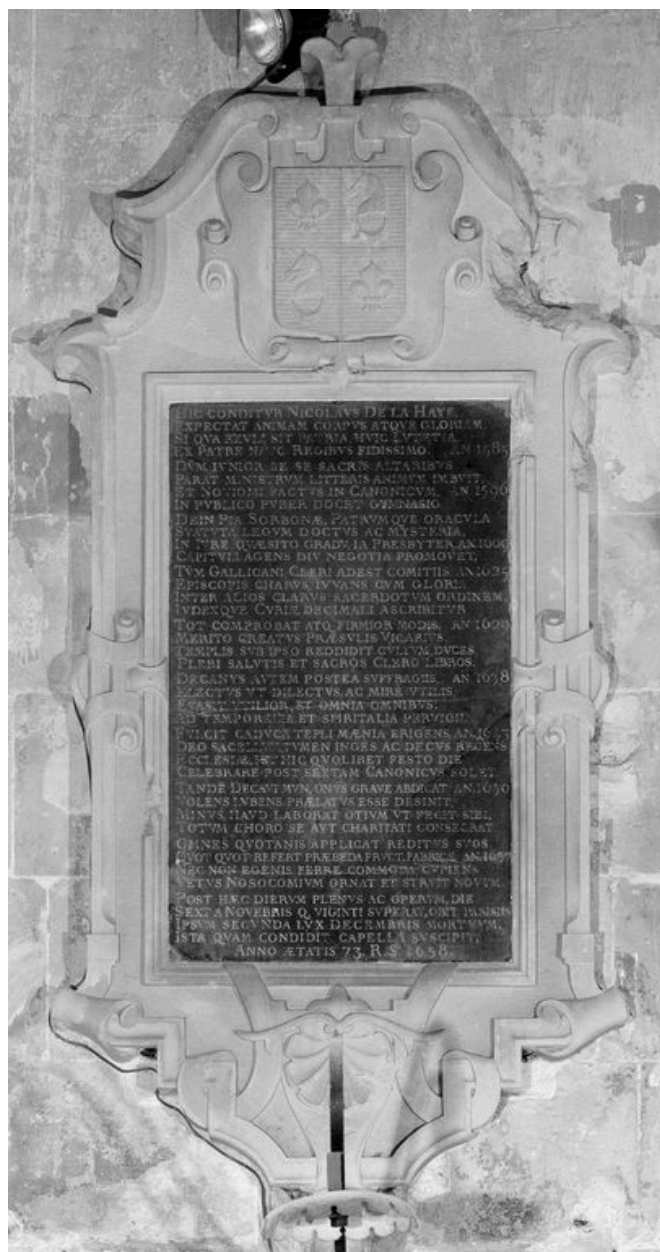 HIC CONDITVR NICOLAVS DE LA HAYE,
EXPECTAT ANIMAM CORPVS ATQVE GLORIAM.
SI QVA EXVLI SIT PATRIA HVIC LVTETIA
EX PATRE REGIBVS FIDISSIMO. AN 1585
DVM IVNIOR SE SE SACRIS ALTARIBVS
PARAT MINISTRVM LITTERIS ANIMVM IMBVIT,
ET NOVIOMI FACTVS IN CANONICVM, AN 1596
IN PVBLICO PVBER DOCET GYMNASIO
DEIN PER SORBONÆ, PATRVMQVE ORACVLA
STATVTA LEGVM DOCTVS AC MYSTERIA,
IN IVRE QVÆSITO GRADV, IA PRESBYTER, AN
CAPITVLI AGENS DIV NEGOTIA PROMOVET,
TVM GALLICANI CLERI ADEST COMITIIS AN 1625
EPISCOPIS CHARVS IVVANS CVM GLORIA
INTER ALIOS CLARVS SACERDOTVM ORDINEM,
IVDEXQVE CVRIÆ DECIMALI ASCRIBITVR
TOT COMPROBAT ATQ FIRMIOR MODIS, AN 1629
MERITO CREATVS PRÆSVLIS VICARIVS
TEMPLIS SVB IPSO REDDIDIT CVLTVM, DVCES
PLEBI SALVTIS ET SACROS CLERO LIBROS.
DECANVS AVTEM POSTEA SVFFRAGIIS, AN 1638
ELECTVS VT DILECTVS, AC MIRE VTILIS
EVASIT VTILIOR, ET OMNIA OMNIBVS.
AD TEMPORALIA ET SPIRITALIA PERVIGIL
FVLCIT CADVCA TEPLI MÆNIA ERIGENS, AN 1643
DEO SACELLVM LVMEN INGES AC DECVS REGENS
ECCLESIÆ, HIC QVOLIBET FESTO DIE
CELEBRARE POST SEXTAM CANONICVS SOLET.
TANDE DECANI MVN, ONVS GRAVE ABDICAT AN 1650
VOLENS LVBENS PRÆLATVS ESSE DESINIT,
MINVS HAVD LABORAT OTIVM VT FECIT SIBI,
TOTVM CHORO SE AVT CHARITATI CONSECRAT.
OMNES QVOTANIS APPLICAT REDITVS SVOS
QVOT QVOT REFERT PRÆBEDA FRVCT, FABRICÆ AN 1657
NEC NON EGENIS FERRE COMMODA CVPIENS
VETVS NOSOCOMIVM ORNAT ET STRVIT NOVVM.
POST HÆC DIERVM PLENVS AC OPERVM, DIE
SEXTA NOVEBRIS Q VIGINTI SVPERAT, OBIIT PARISIIS
IPSVM SECVNDA LVX DECEMBRIS MORTVVM,
ISTA QVAM CONDIDIT CAPELLA SVSCIPIT,
ANNO ÆTATIS 73. R.S 1658.